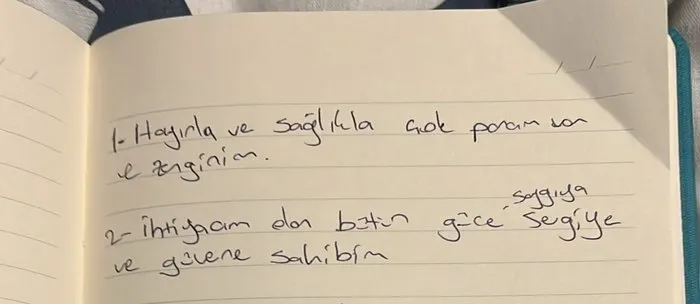 1- Hayırla ve sağlıkla çok param var
ve zenginim.
saygıya
2- ihtiyacım olan bütün güce, sevgiye
ve güvene sahibim